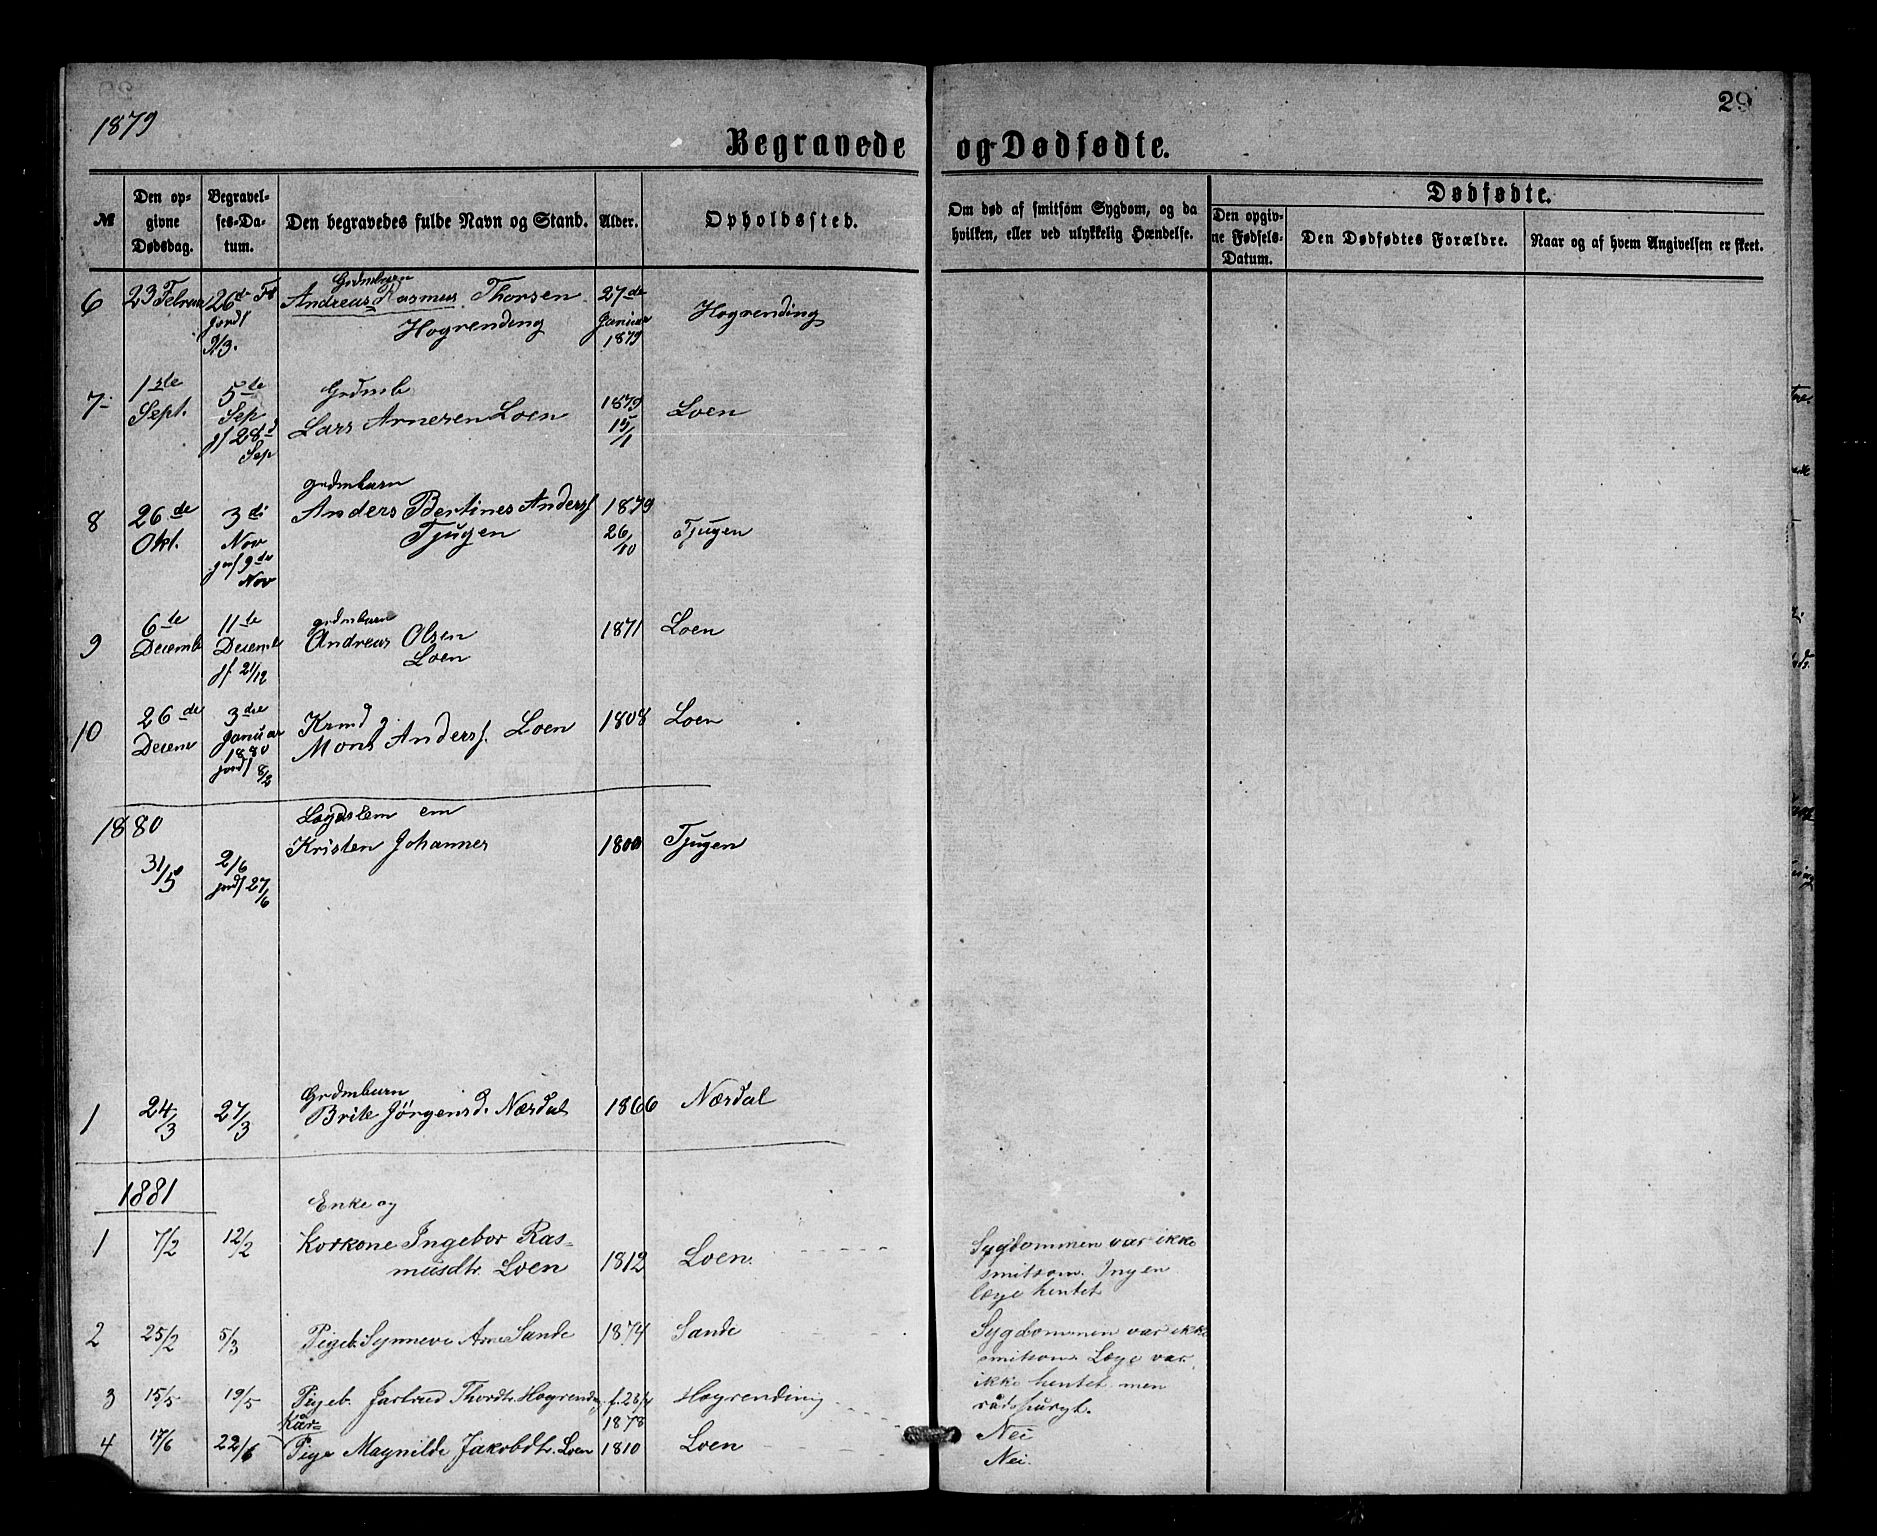 1879
29
Begravede og Dødfødte.
№
Den opgivne Dødsdag.
Begravelses-Datum.
Den begravedes fulde Navn og Stand.
Alder.
Opholdssted.
Om død af smitsom Sygdom, og da hvilken, eller ved ulykkelig Hændelse.
Dødfødte.
Den opgivne Fødsels-Datum.
Den Dødfødtes Forældre.
Naar og af hvem Angivelsen er skeet.
6 23 Februar 26de Grdmbarn
Andreas Rasmus Thorsen 27de
jordf Hogrending Januar Hogrending
2/3. 1879
7 1ste 5te Grdmb
Sept. Sep Lars Arnesen Loen 1879 Loen
jf 28d 15/1
Sep
8 26de 3di Grdmbarn
Okt. Nov Anders Bertines Andersf 1879 Tjugen
jorf 9de Tjugen 26/10
Nov
9 6te 11te Grdmbarn
Decemb Decemb Andreas Olsen 1871 Loen
jf. 21/12 Loen
10 26de 3die Krmd
Decem Januar Mons Andersf. Loen 1808 Loen
1880
jordf 8/2
1880
Lægdslem em
31/5 2/6 Kristen Johannes 1800 Tjugen
jordf 27/6
1 24/3 27/3 Grdmbarn
Brite Jörgensd. Nærdal 1866 Nærdal
1881
Enke og
1 7/2 12/2 Korkone Ingebor Ras-
musdtr. Loen 1812 Loen. Sygdommen var ikke
smitsom. Ingen
læge hentet
2 25/2 5/3 Pigeb. Synneve Arne Sande 1874 Sande Sygdommen var ikke
smitsom. Læge var
ikke hentet men
rådspurgt.
3 15/5 19/5 Pigeb. Jartrud Thordtr. Hogrending f. 23/4 Hogrending
1878 Nei
Kår-
4 17/6 22/6 Pige Magnilde Jakobdtr. Loen 1810 Loen Nei.